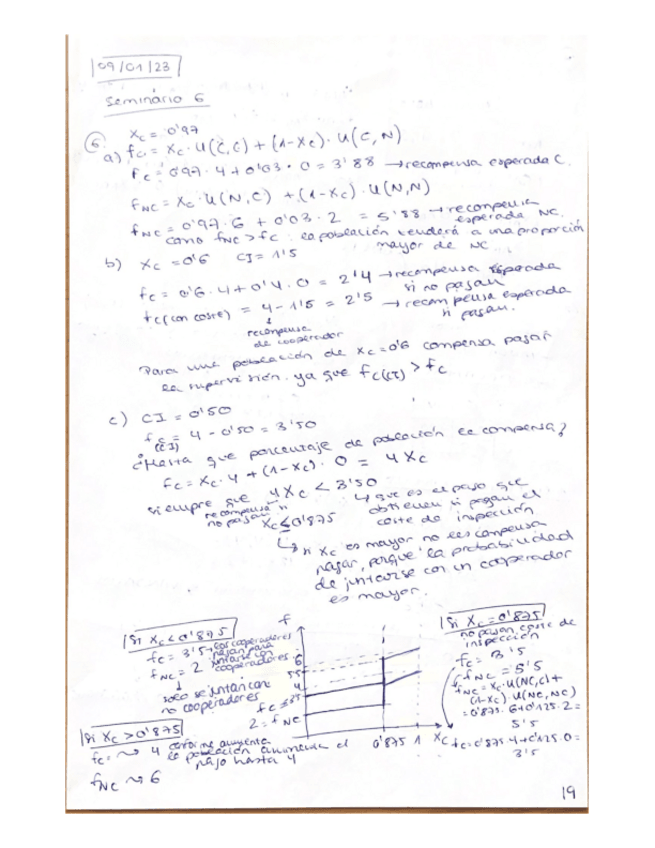 09/01/23
Seminário 6
6. Xc = 0'97
a) fc = Xc · U(C,C) + (1-Xc) · U(C,N)
fc = 0'97 · 4 + 0'03 · 0 = 3'88 → recompensa esperada C.
fNC = Xc · U(N,C) + (1-Xc) · U(N,N)
fNC = 0'97 · 6 + 0'03 · 2 = 5'88 → recompensa esperada NC.
como fNC > fc la población tenderá a una proporción
mayor de NC
b) Xc = 0'6 CI = 1'5
fc = 0'6 · 4 + 0'4 · 0 = 2'4 → recompensa esperada
si no pagan
fc(con coste) = 4 - 1'5 = 2'5 → recompensa esperada
si pagan.
↓
recompensa
de cooperador
Para una población de Xc = 0'6 compensa pagar
la supervisión. ya que fc(CI) > fc
c) CI = 0'50
fc(CI) = 4 - 0'50 = 3'50
¿Hasta que porcentaje de población le compensa?
fc = Xc · 4 + (1-Xc) · 0 = 4Xc
siempre que 4Xc < 3'50
recompensa si
no pagan
↳ que es el pago que
obtienen si pagan el
coste de inspección
Xc ≤ 0'875
↳ si Xc es mayor no les compensa
pagar, porque la probabilidad
de juntarse con un cooperador
es mayor.
Si Xc < 0'875
fc = 3'5 → los cooperadores
pagan para
juntarse con
cooperadores.
fNC = 2
↓
solo se juntan con
no cooperadores
Si Xc > 0'875
fc = ~> 4 conforme aumenta
la población aumenta el
pago hasta 4
fNC ~> 6
f
6
5'5
4
fc = 3'5
2 = fNC
0'875 1 Xc
Si Xc = 0'875
no pagan coste de
inspección
fc = 3'5
fNC = 5'5
fNC = Xc · U(NC,C) +
(1-Xc) · U(NC,NC)
= 0'875 · 6 + 0'125 · 2 =
5'5
fc = 0'875 · 4 + 0'125 · 0 =
3'5
19